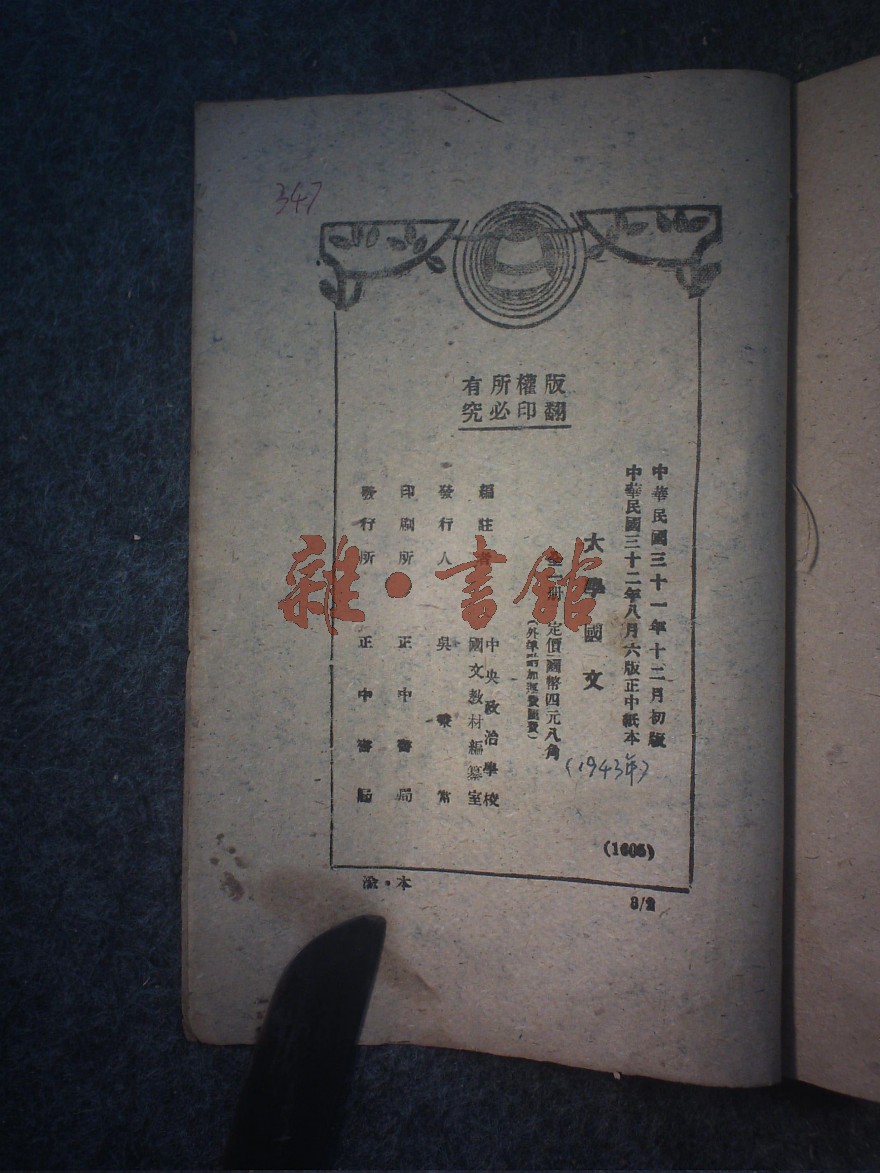 347
版權所有
翻印必究
中華民國三十一年十二月初版
中華民國三十二年八月六版正中紙本
(1943年)
大學國文
全一册 定價國幣四元八角
(外埠酌加運費匯費)
編註者 中央政治學校
國文教材編纂室
發行人 吳秉常
印刷所 正中書局
發行所 正中書局
(1605)
渝·本
3/2
雜·書館